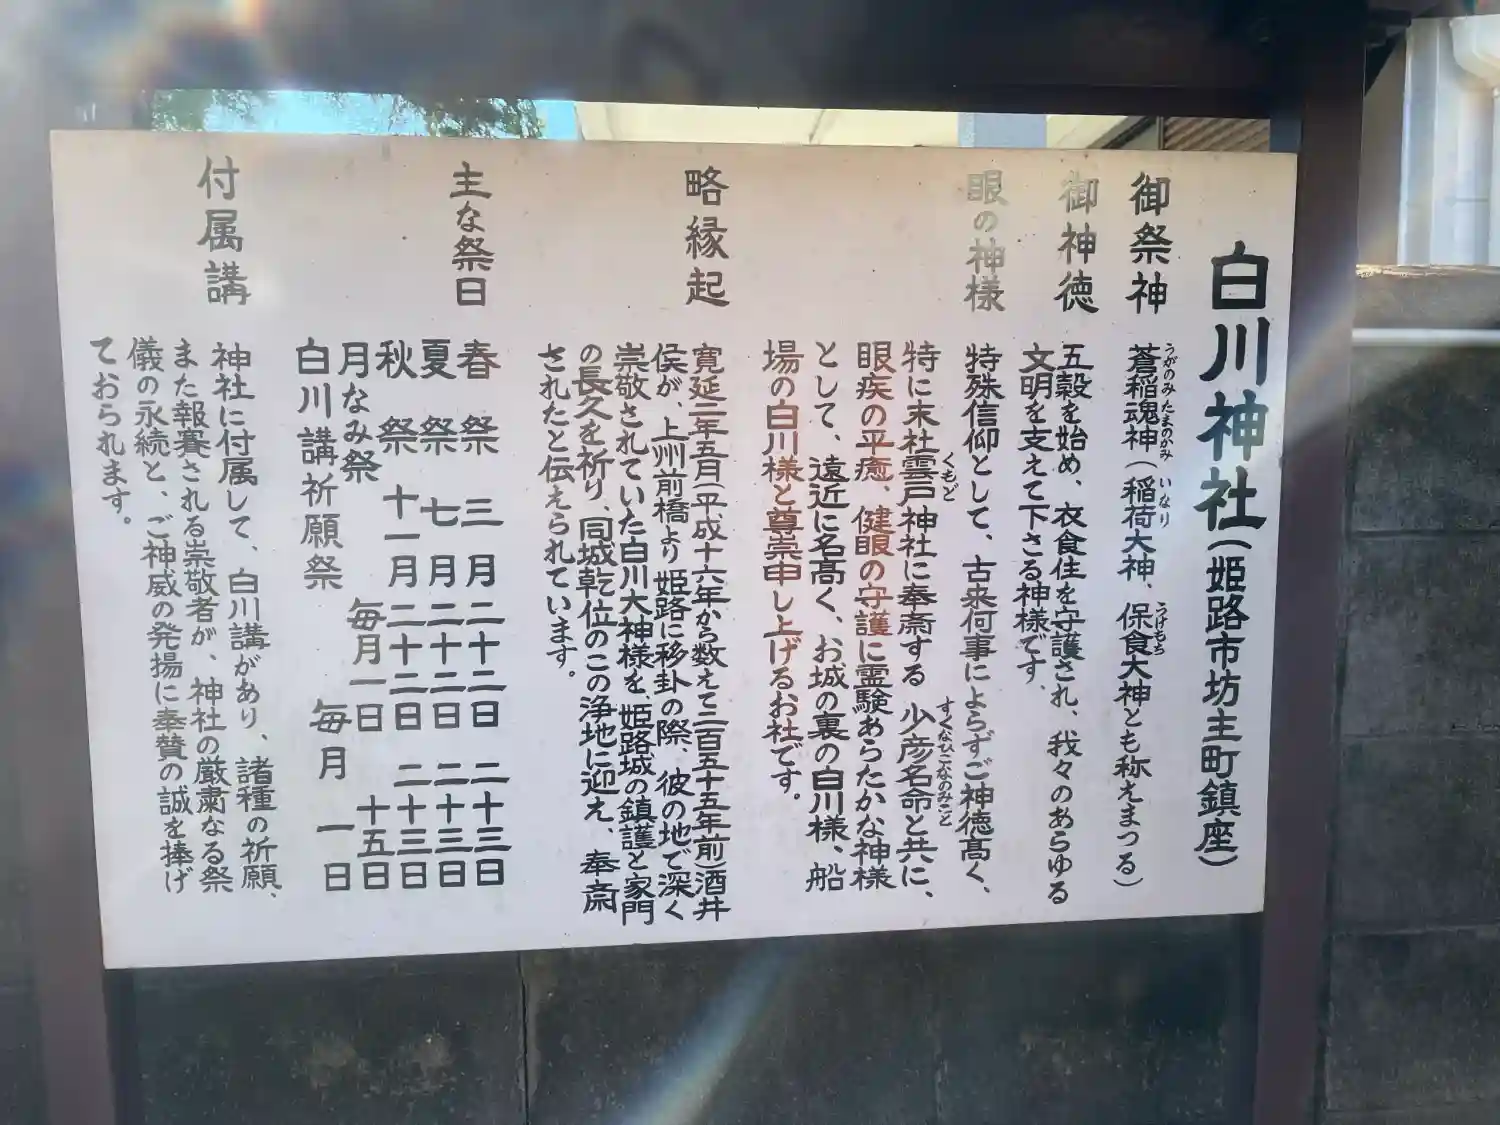 白川神社(姫路市坊主町鎮座)
御祭神
蒼稲魂神(稲荷大神、保食大神とも称えまつる)
うがのみたまのかみ いなり うけもち
御神徳
五穀を始め、衣食住を守護され、我々のあらゆる
文明を支えて下さる神様です。
眼の神様
特殊信仰として、古来何事によらずご神徳高く、
特に末社雲戸神社に奉斎する少彦名命と共に、
くもど すくなひこなのみこと
眼疾の平癒、健眼の守護に霊験あらたかな神様
として、遠近に名高く、お城の裏の白川様、船
場の白川様と尊崇申し上げるお社です。
略縁起
寛延二年五月(平成十六年から数えて二百五十五年前)酒井
侯が、上州前橋より姫路に移卦の際、彼の地で深く
崇敬されていた白川大神様を、姫路城の鎮護と家門
の長久を祈り、同城乾位のこの浄地に迎え、奉斎
されたと伝えられています。
主な祭日
春祭 三月二十二日 二十三日
夏祭 七月二十二日 二十三日
秋祭 十一月二十二日 二十三日
月なみ祭 毎月一日 十五日
白川講祈願祭 毎月一日
付属講
神社に付属して、白川講があり、諸種の祈願、
また報賽される崇敬者が、神社の厳粛なる祭
儀の永続と、ご神威の発揚に奉賛の誠を捧げ
ておられます。